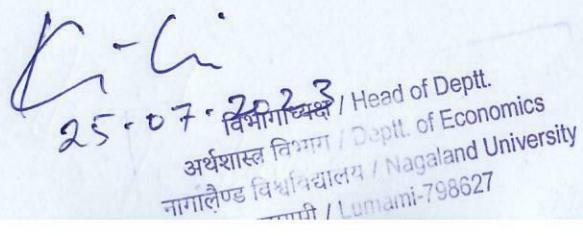 25-07-2023
विभागाध्यक्ष / Head of Deptt.
अर्थशास्त्र विभाग / Deptt. of Economics
नागालैण्ड विश्वविद्यालय / Nagaland University
/ Lumami-798627